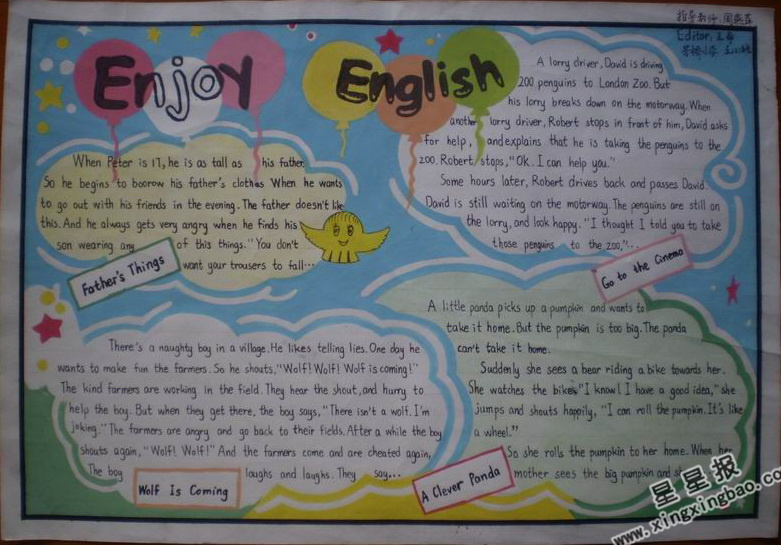 指导教师:周
Editor:王
Enjoy English
When Peter is 17, he is as tall as his father.
So he begins to boorow his father's clothes When he wants
to go out with his friends in the evening. The father doesn't like
this. And he always gets very angry when he finds his
son wearing any of this things. "You don't
want your trousers to fall...
Father's Things
A lorry driver, David is driving
200 penguins to London Zoo. But
his lorry breaks down on the motorway. When
another lorry driver, Robert stops in front of him, David asks
for help, and explains that he is taking the penguins to the
zoo. Robert stops, "Ok. I can help you."
Some hours later, Robert drives back and passes David.
David is still waiting on the motorway. The penguins are still on
the lorry, and look happy. "I thought I told you to take
those penguins to the zoo,"...
Go to the Cinema
There's a naughty boy in a village. He likes telling lies. One day he
wants to make fun the farmers. So he shouts, "Wolf! Wolf! Wolf is coming!"
The kind farmers are working in the field. They hear the shout, and hurry to
help the boy. But when they get there, the boy says, "There isn't a wolf. I'm
joking." The farmers are angry and go back to their fields. After a while the boy
shouts again, "Wolf! Wolf!" And the farmers come and are cheated again,
The boy laughs and laughs. They say...
Wolf Is Coming
A little panda picks up a pumpkin and wants to
take it home. But the pumpkin is too big. The panda
can't take it home.
Suddenly she sees a bear riding a bike towards her.
She watches the bike. "I know! I have a good idea," she
jumps and shouts happily, "I can roll the pumpkin. It's like
a wheel."
So she rolls the pumpkin to her home. When her
mother sees the big pumpkin and
A Clever Panda
星星报
www.xingxingbao.com